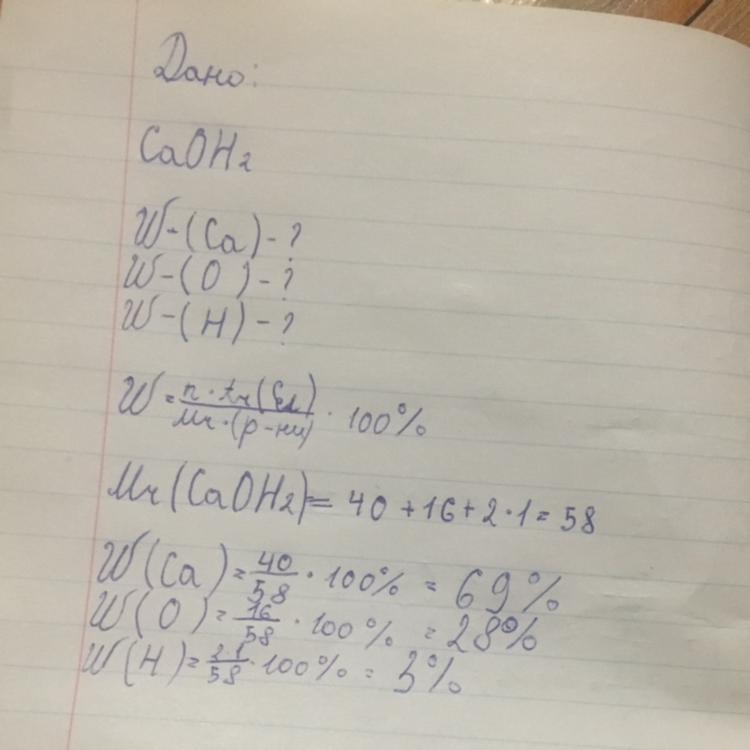 Дано:
CaOH₂
W-(Ca)-?
W-(O)-?
W-(H)-?
W = n · Ar(Эл) / Mr · (р-ни) · 100%
Mr(CaOH₂) = 40 + 16 + 2 · 1 = 58
W(Ca) = 40/58 · 100% = 69%
W(O) = 16/58 · 100% = 28%
W(H) = 2·1/58 · 100% = 3%